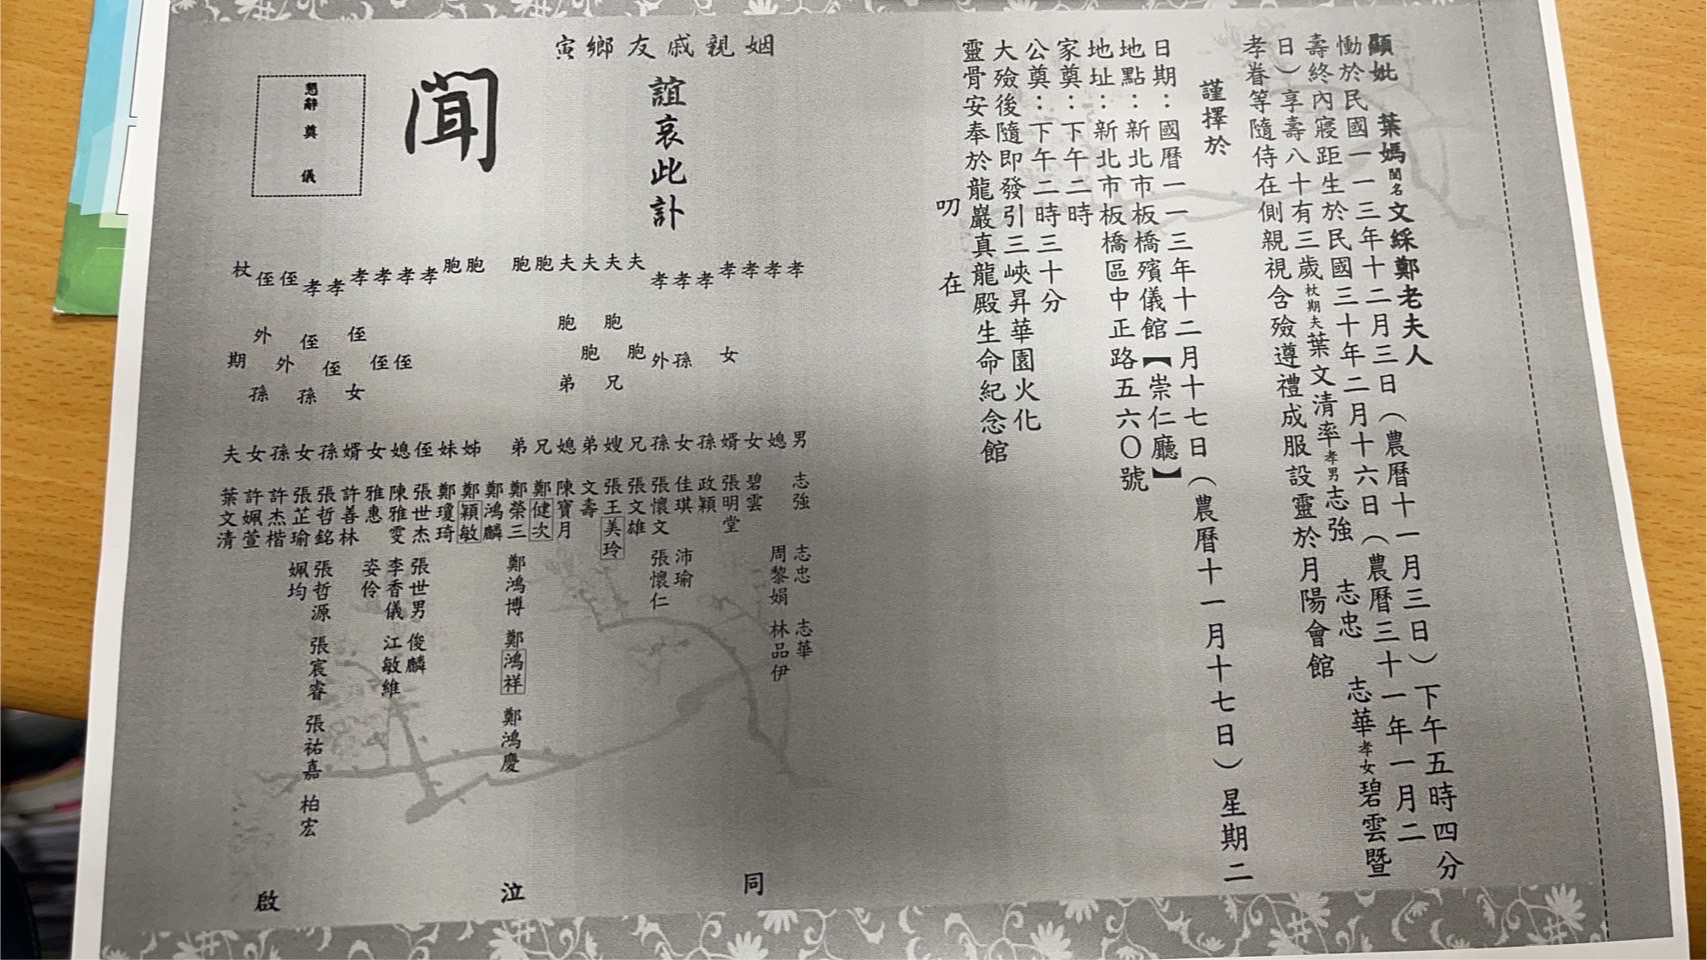 顯妣 葉媽閨名文綵鄭老夫人
慟於民國一一三年十二月三日（農曆十一月三日）下午五時四分
壽終內寢距生於民國三十年二月十六日（農曆三十一年一月二
日）享壽八十有三歲杖期夫葉文清率孝男志強 志忠 志華孝女碧雲暨
孝眷等隨侍在側親視含殮遵禮成服設靈於月陽會館
謹擇於
日期：國曆一一三年十二月十七日（農曆十一月十七日）星期二
地點：新北市板橋殯儀館【崇仁廳】
地址：新北市板橋區中正路五六〇號
家奠：下午二時
公奠：下午二時三十分
大殮後隨即發引三峽昇華園火化
靈骨安奉於龍巖真龍殿生命紀念館
叨在
姻親戚友鄉寅
誼哀此訃
聞
懇辭 奠儀
孝男 志強 志忠 志華
孝媳 周黎娟 林品伊
孝女 碧雲
孝女婿 張明堂
孝孫 政穎
孝孫女 佳琪 沛瑜
孝外孫 張懷文 張懷仁
夫胞兄 張文雄
夫胞兄嫂 張王美玲
夫胞弟 文壽
夫胞弟媳 陳寶月
胞兄 鄭健次
胞弟 鄭榮三 鄭鴻博 鄭鴻祥 鄭鴻慶
鄭鴻麟
胞姊 鄭穎敏
胞妹 鄭瓊琦
孝侄 張世杰 張世男 俊麟
孝侄媳 陳雅雯 李香儀 江敏維
孝侄女 雅惠 姿伶
孝侄女婿 許善林
孝侄孫 張哲銘 張哲源 張宸睿 張祐嘉 柏宏
孝侄孫女 張芷瑜 姵均
侄外孫 許杰楷
侄外孫女 許姵萱
杖期夫 葉文清
同泣啟